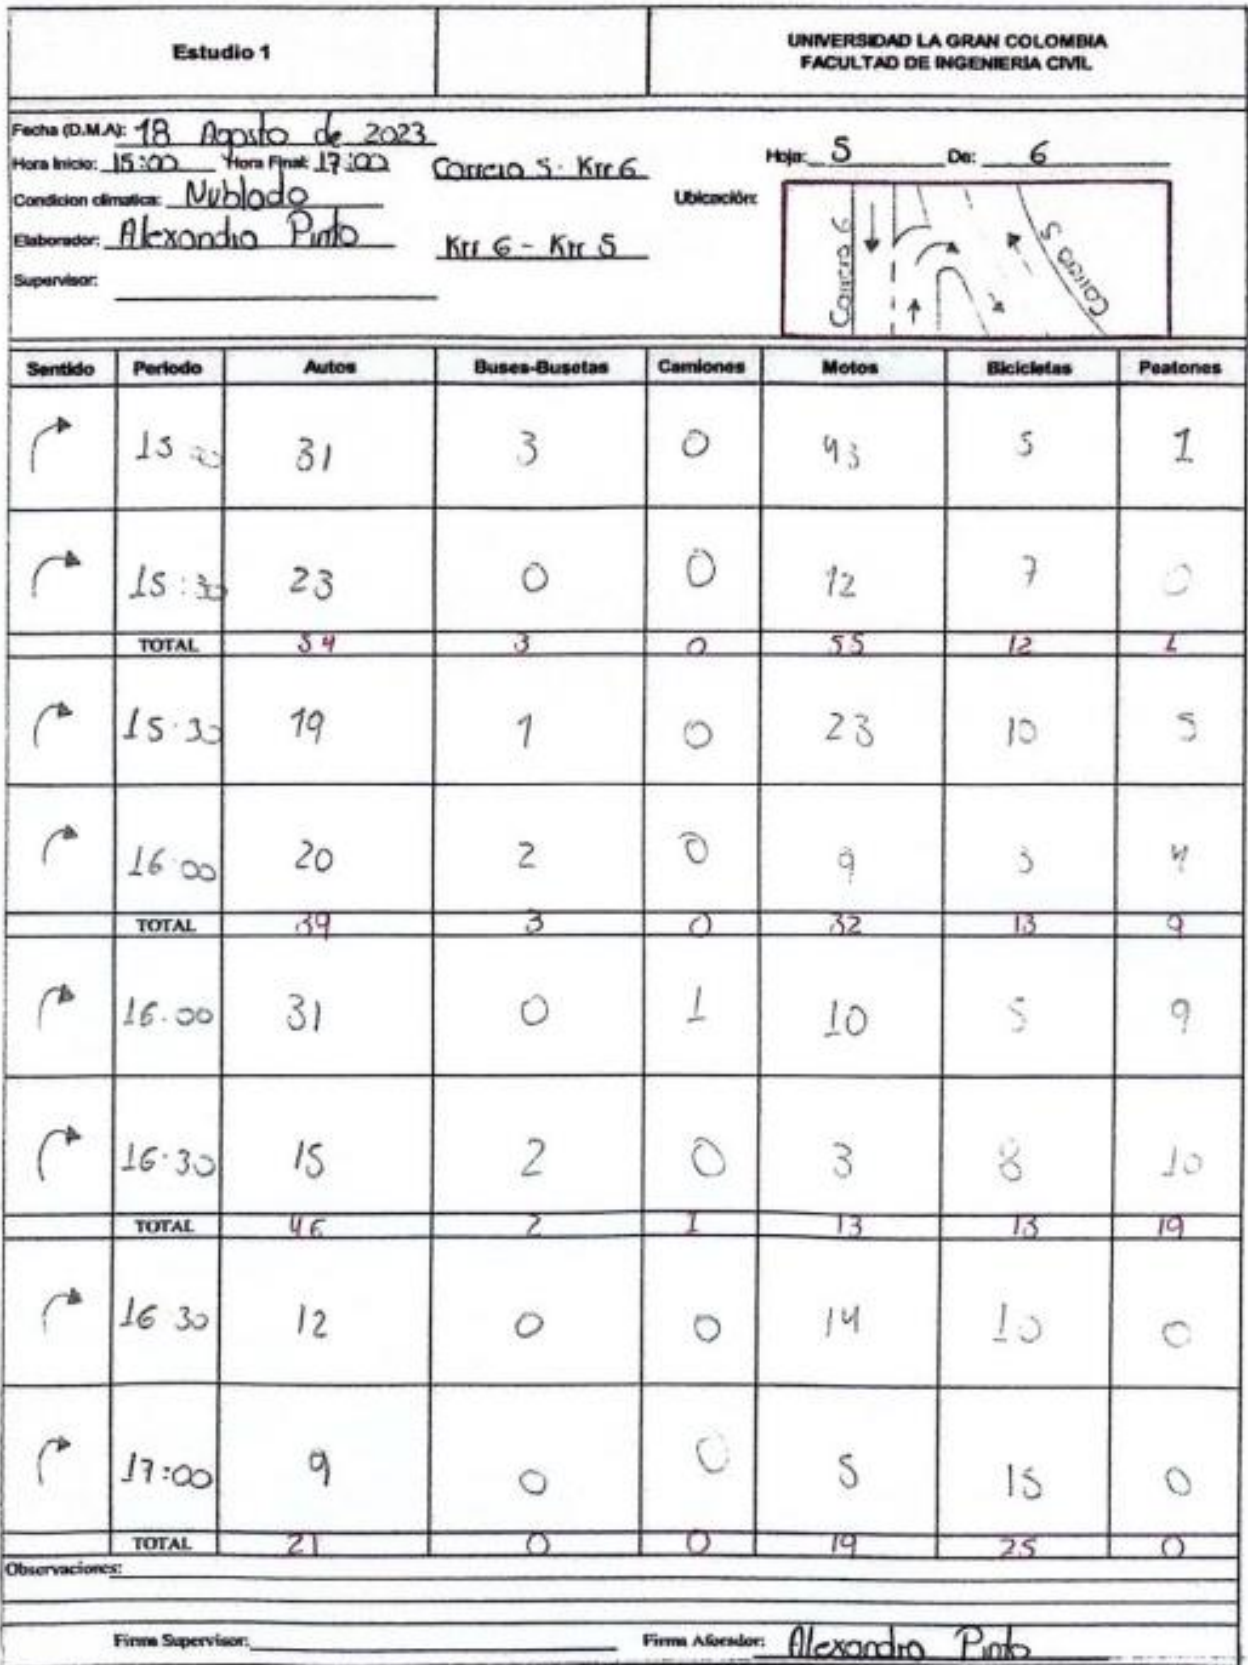 Estudio 1
UNIVERSIDAD LA GRAN COLOMBIA
FACULTAD DE INGENIERIA CIVIL
Fecha (D.M.A): 18 Agosto de 2023
Hora Inicio: 15:00 Hora Final: 17:00
Carrera 5 - Krr 6
Hoja: 5 De: 6
Condicion climatica: Nublado
Ubicación:
Elaborador: Alexandra Pinto
Krr 6 - Krr 5
Supervisor:
Carrera 6
Carrera 5
Sentido Periodo Autos Buses-Busetas Camiones Motos Bicicletas Peatones
15:00 31 3 0 43 5 1
15:30 23 0 0 12 7 0
TOTAL 54 3 0 55 12 1
15:30 19 1 0 23 10 5
16:00 20 2 0 9 3 4
TOTAL 39 3 0 32 13 9
16:00 31 0 1 10 5 9
16:30 15 2 0 3 8 10
TOTAL 46 2 1 13 13 19
16 30 12 0 0 14 10 0
17:00 9 0 0 5 15 0
TOTAL 21 0 0 19 25 0
Observaciones:
Firma Supervisor: Firma Aforador: Alexandra Pinto